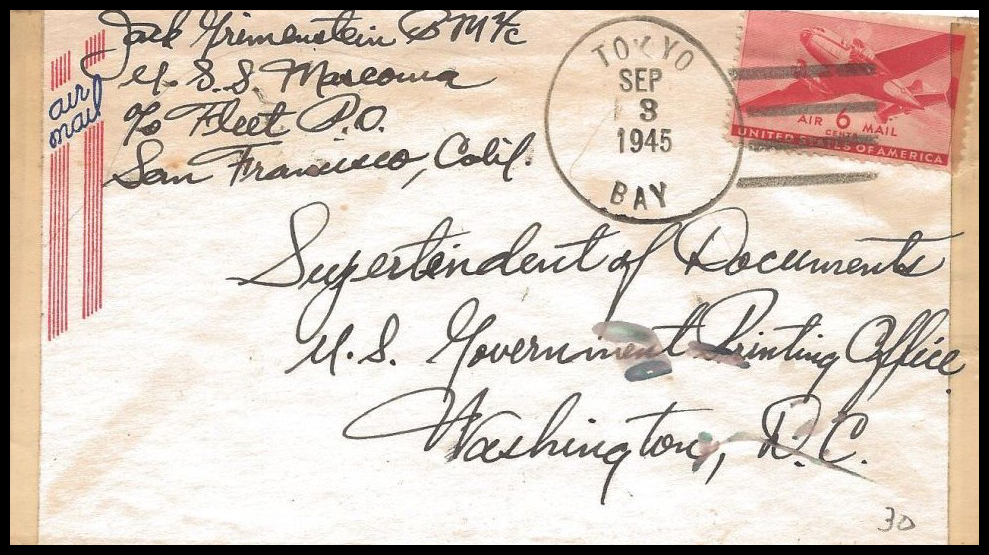 Jack Grimenstein BM 2/c
U.S.S. Mascoma
c/o Fleet P.O.
San Francisco, Calif.
air
mail
TOKYO
SEP
3
1945
BAY
AIR 6 MAIL
CENTS
UNITED STATES OF AMERICA
Suptertendent of Documents
U.S. Government Printing Office
Washington, D.C.
30